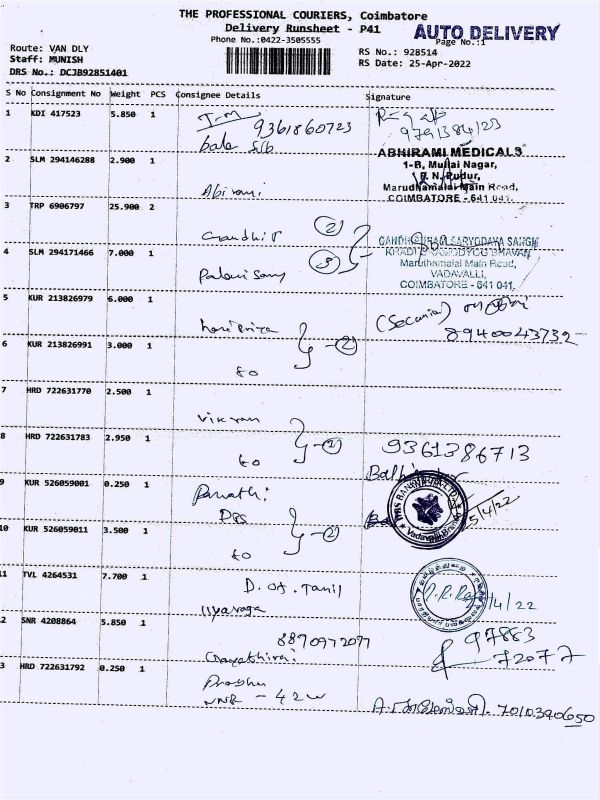 THE PROFESSIONAL COURIERS, Coimbatore
Delivery Runsheet - P41
AUTO DELIVERY
Phone No.:0422-3505555
Page No.:1
Route: VAN DLY
Staff: MUNISH
DRS No.: DCJB92851401
RS No.: 928514
RS Date: 25-Apr-2022
S No Consignment No Weight PCS Consignee Details Signature
1 KDI 417523 5.850 1
9361860723
9791384123
2 SLM 294146288 2.900 1
Abirami
ABHIRAMI MEDICALS
1-B, Mullai Nagar,
P. N. Pudur,
Marudhamalai Main Road,
COIMBATORE - 641 041.
3 TRP 6906797 25.900 2
2
4 SLM 294171466 7.000 1
Palanisamy
3
KHADI GRAMODYOG BHAVAN
Maruthamalai Main Road,
VADAVALLI,
COIMBATORE - 641 041.
5 KUR 213826979 6.000 1
haripriya
8940043732
6 KUR 213826991 3.000 1
to
2
7 HRD 722631770 2.500 1
8 HRD 722631783 2.950 1
to
9361386713
9 KUR 526059001 0.250 1
10 KUR 526059011 3.500 1
to
2
5/4/22
11 TVL 4264531 7.700 1
D. of. Tamil
4/22
12 SNR 4208864 5.850 1
8870972077
Gayathiri
97883
72077
13 HRD 722631792 0.250 1
Prabhu
NNR - 42w
7010390650